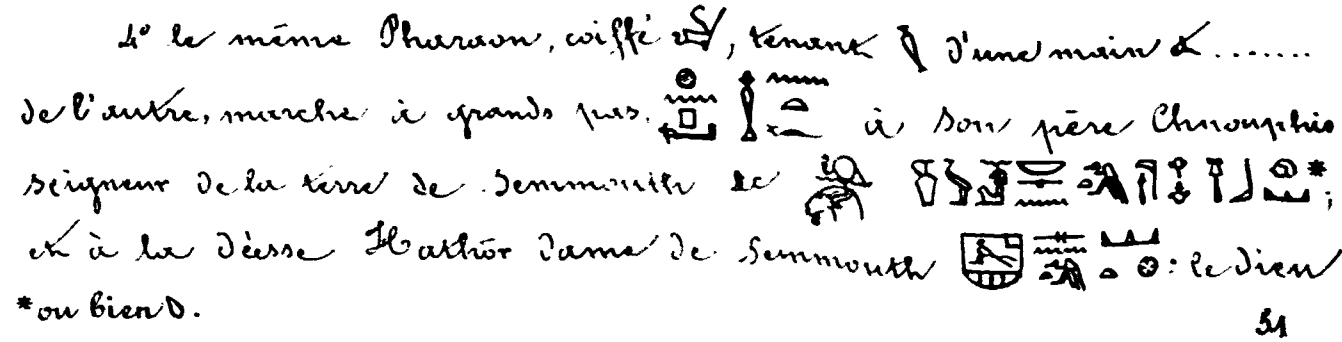 4° le même Pharaon, coiffé , tenant d'une main & .......
de l'autre, marche à grands pas. à son père Chnouphis
seigneur de la terre de Senmouth &c ;
et à la déesse Hathôr dame de Senmouth : le dieu
*ou bien D.
51